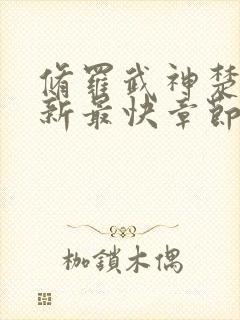 脩羅武神楚
新最快章節
枷鎖木偶